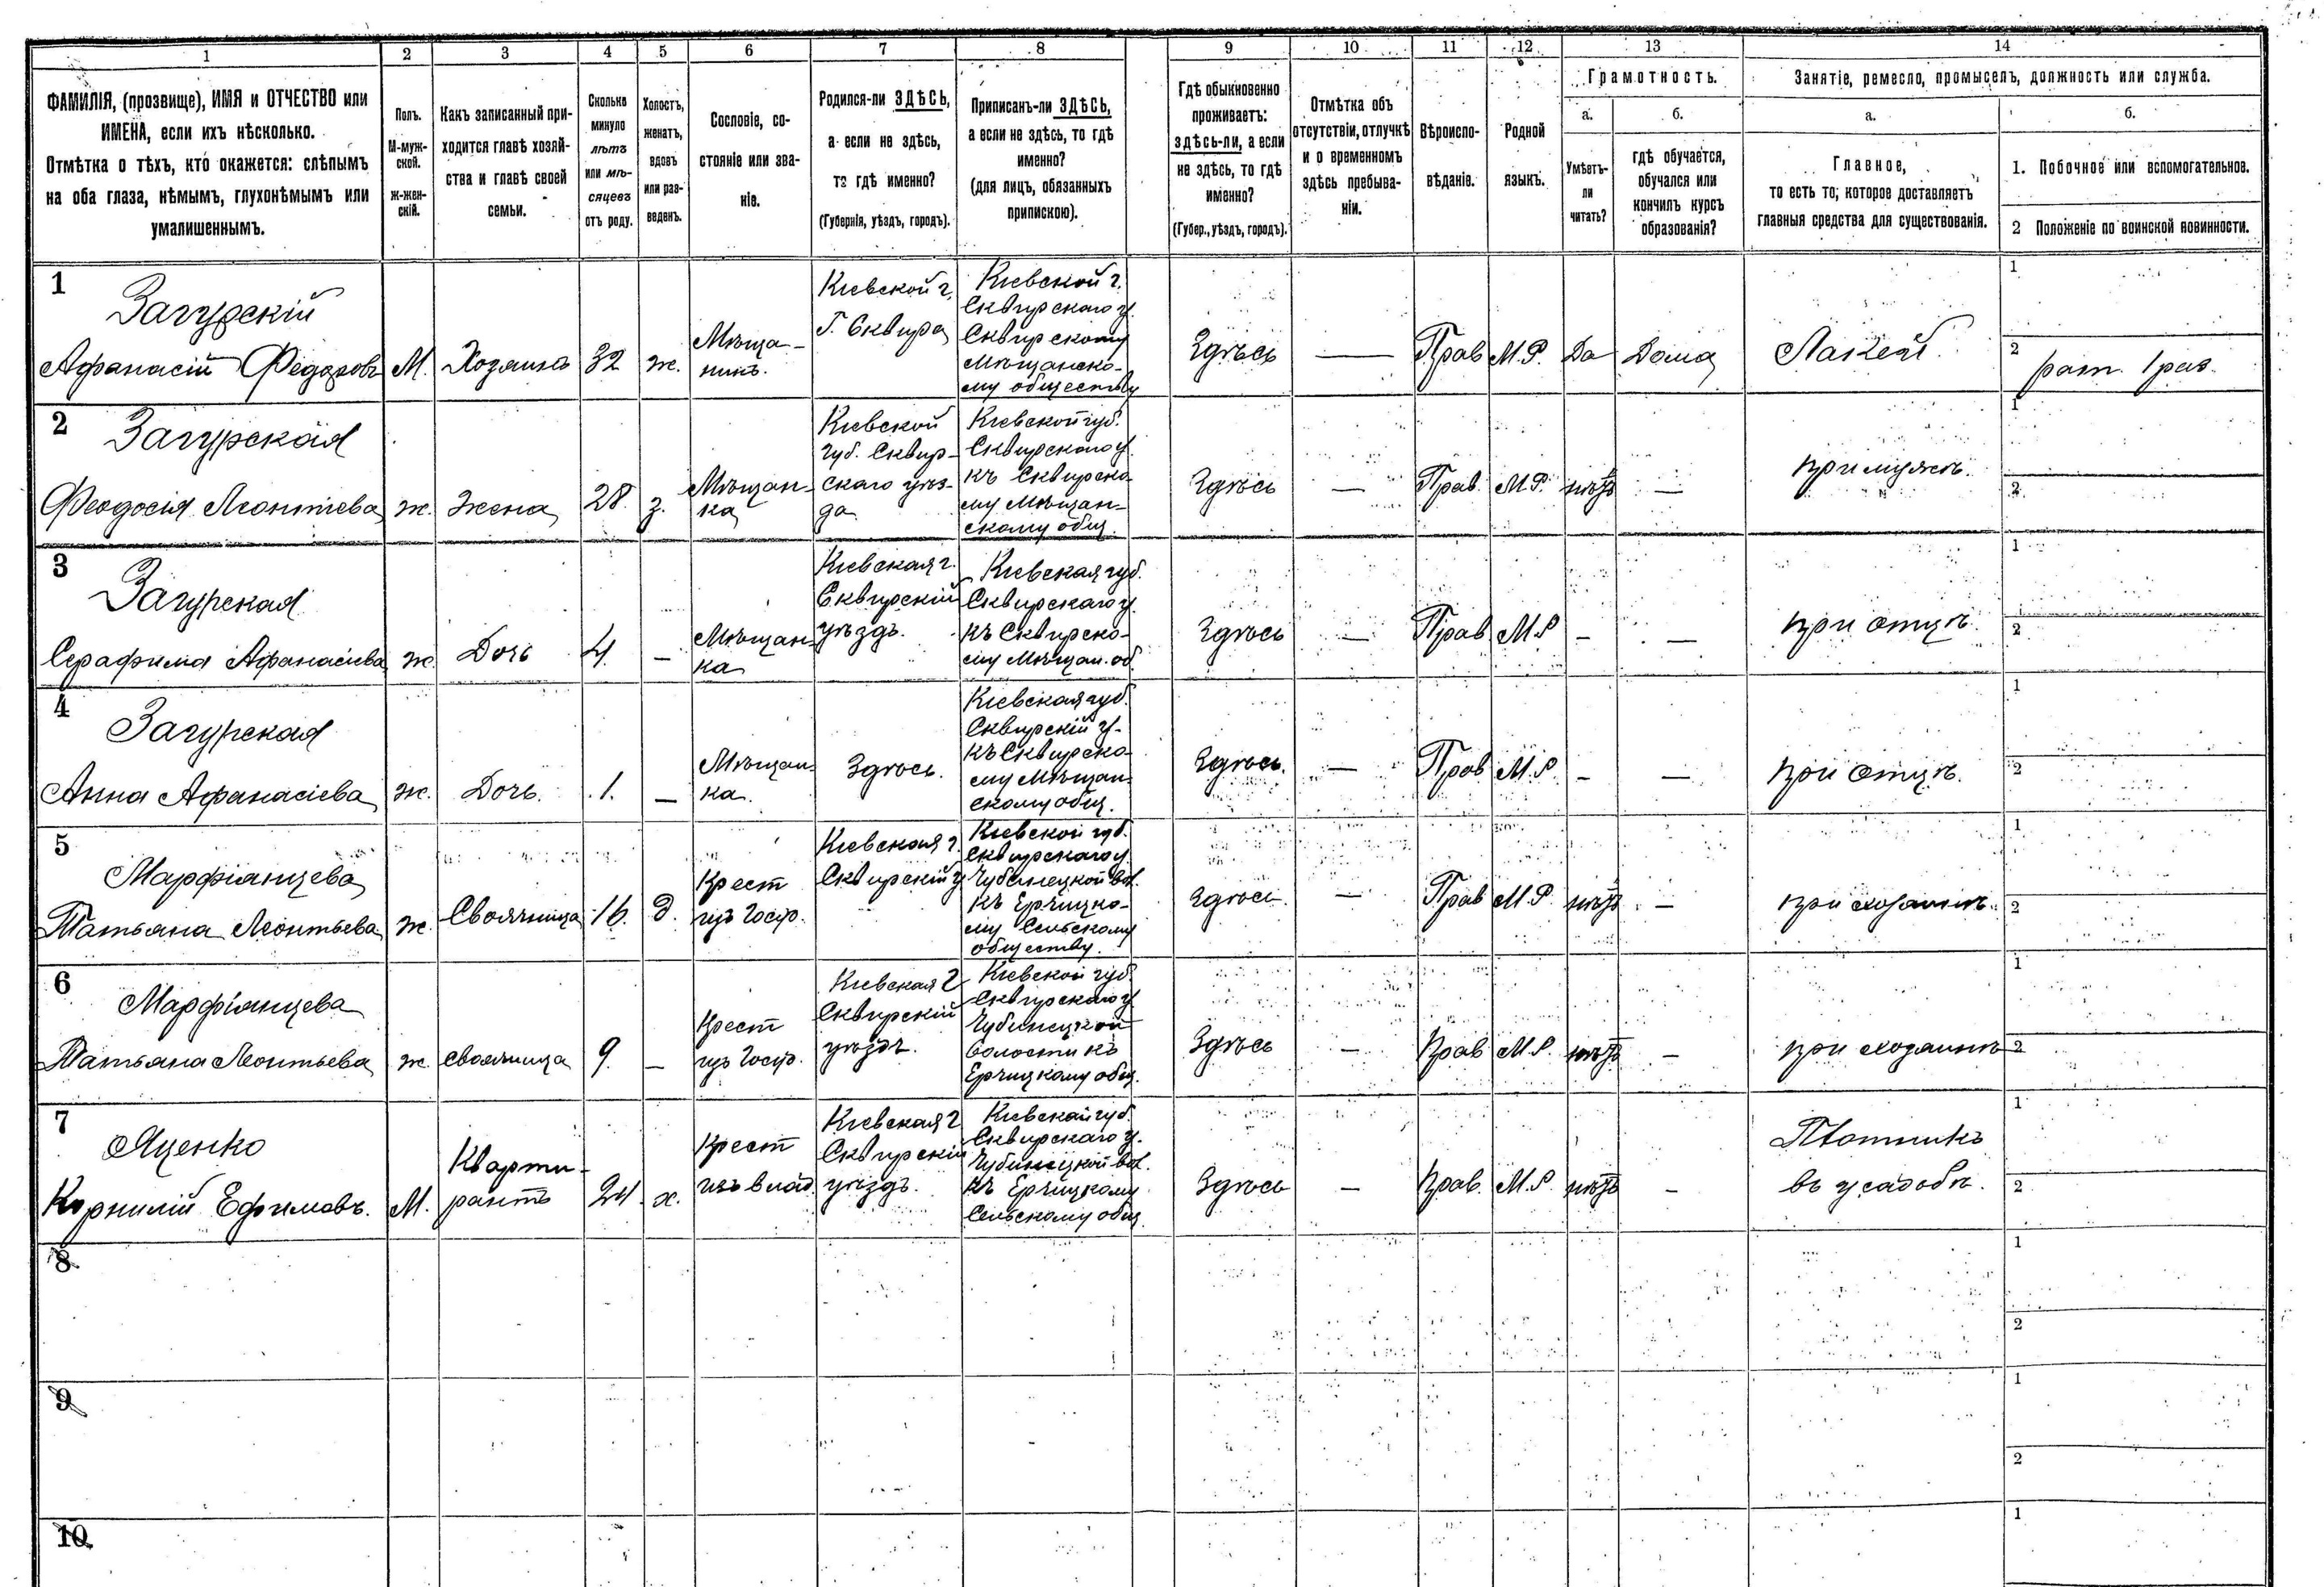 1 2 3 4 5 6 7 8 9 10 11 12 13 14
ФАМИЛІЯ, (прозвище), ИМЯ и ОТЧЕСТВО или
ИМЕНА, если ихъ нѣсколько.
Отмѣтка о тѣхъ, кто окажется: слѣпымъ
на оба глаза, нѣмымъ, глухонѣмымъ или
умалишеннымъ.
Полъ.
М-муж-
ской.
Ж-жен-
скій.
Какъ записанный при-
ходится главѣ хозяй-
ства и главѣ своей
семьи.
Сколько
минуло
лѣтъ
или мѣ-
сяцевъ
отъ роду.
Холостъ,
женатъ,
вдовъ
или раз-
веденъ.
Сословіе, со-
стояніе или зва-
ніе.
Родился-ли ЗДѢСЬ,
а если не здѣсь,
то гдѣ именно?
(Губернія, уѣздъ, городъ).
Приписанъ-ли ЗДѢСЬ,
а если не здѣсь, то гдѣ
именно?
(для лицъ, обязанныхъ
припискою).
Гдѣ обыкновенно
проживаетъ:
здѣсь-ли, а если
не здѣсь, то гдѣ
именно?
(Губер., уѣздъ, городъ).
Отмѣтка объ
отсутствіи, отлучкѣ
и о временномъ
здѣсь пребыва-
ніи.
Вѣроиспо-
вѣданіе.
Родной
языкъ.
Грамотность.
а.
Умѣетъ-
ли
читать?
б.
гдѣ обучается,
обучался или
кончилъ курсъ
образованія?
Занятіе, ремесло, промыселъ, должность или служба.
а.
Главное,
то есть то, которое доставляетъ
главныя средства для существованія.
б.
1. Побочное или вспомогательное.
2 Положеніе по воинской повинности.
1
Загурскій
Афанасій Федоровъ
М.
Хозяинъ
32
ж.
Мѣща-
нинъ.
Кіевской г.
Г. Сквира
Кіевской г.
Сквирскаго у.
Сквирскому
Мѣщанско-
му обществу
Здѣсь
—
Прав
М.Р.
Да
Дома
Лакей
1
2
рат. 1 раз.
2
Загурская
Феодосія Леонтіева
ж.
Жена
28.
з.
Мѣщан-
ка
Кіевской
губ. Сквир-
скаго уѣз-
да
Кіевской губ.
Сквирскаго у.
къ Сквирско-
му Мѣщан-
скому общ.
Здѣсь
—
Прав.
М.Р.
нѣтъ
—
при мужѣ.
1
2
3
Загурская
Серафима Афанасіева
ж.
Дочь
4
—
Мѣщан-
ка
Кіевская г.
Сквирскій
уѣздъ.
Кіевская губ.
Сквирскаго у.
къ Сквирско-
му Мѣщан. об.
Здѣсь
—
Прав
М.Р
—
—
при отцѣ.
1
2
4
Загурская
Анна Афанасіева
ж.
Дочь.
1.
—
Мѣщан-
ка.
Здѣсь.
Кіевская губ.
Сквирскій у.
къ Сквирско-
му Мѣщан-
скому общ.
Здѣсь.
—
Прав
М.Р.
—
—
при отцѣ.
1
2
5
Марфіянцева
Татьяна Леонтьева
ж.
Своячница
16.
д.
Крест
изъ Госуд.
Кіевская г.
Сквирскій у
Кіевской губ.
Сквирскаго у.
Чубинецкой вол.
къ Ерчицко-
му Сельскому
обществу.
Здѣсь
—
Прав
М.Р
нѣтъ
—
при хозяинѣ.
1
2
6
Марфіянцева
Татьяна Леонтьева
ж.
своячница
9.
—
Крест
изъ Госуд.
Кіевская г
Сквирскій
уѣздъ.
Кіевской губ
Сквирскаго у
Чубинецкой
волости къ
Ерчицкому общ.
Здѣсь
—
Прав
М.Р.
нѣтъ
—
при хозяинѣ
1
2
7
Яценко
Корнилій Ефимовъ.
М.
Кварти-
рантъ
24
х.
Крест
изъ влад.
Кіевская г
Сквирскій
уѣздъ.
Кіевской губ
Сквирскаго у.
Чубинецкой вол.
къ Ерчицкому
Сельскому общ
Здѣсь
—
Прав.
М.Р.
нѣтъ
—
Плотникъ
въ усадьбѣ.
1
2
8
1
2
9
1
2
10
1